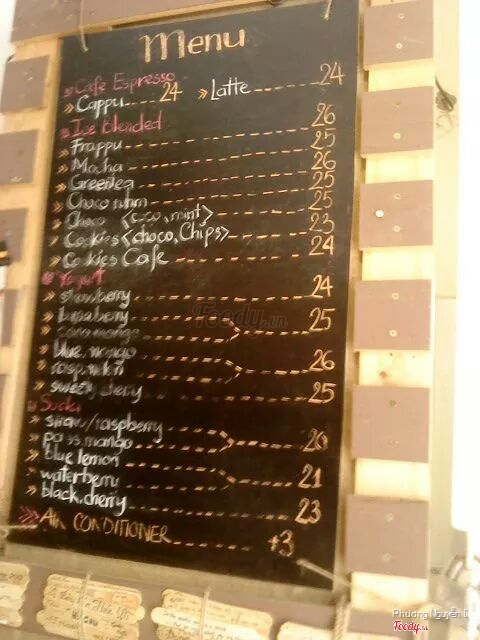 Menu
Cafe Espresso
Cappu 24 Latte 24
Ice blended
Frappu 26
Mocha 25
Greentea 26
Choco ruhm 25
Choco <coco, mint> 25
Cookies <choco, Chips> 23
Cookies Cafe 24
Yogurt
strawberry 24
25
blue. mango
26
sweet chery 25
Soda
straw/raspberry
pass. mango 20
blue lemon
waterberri 21
black cherry 23
AIR CONDITIONER +3
Foody.vn
Phương Nguyễn
Foody.vn